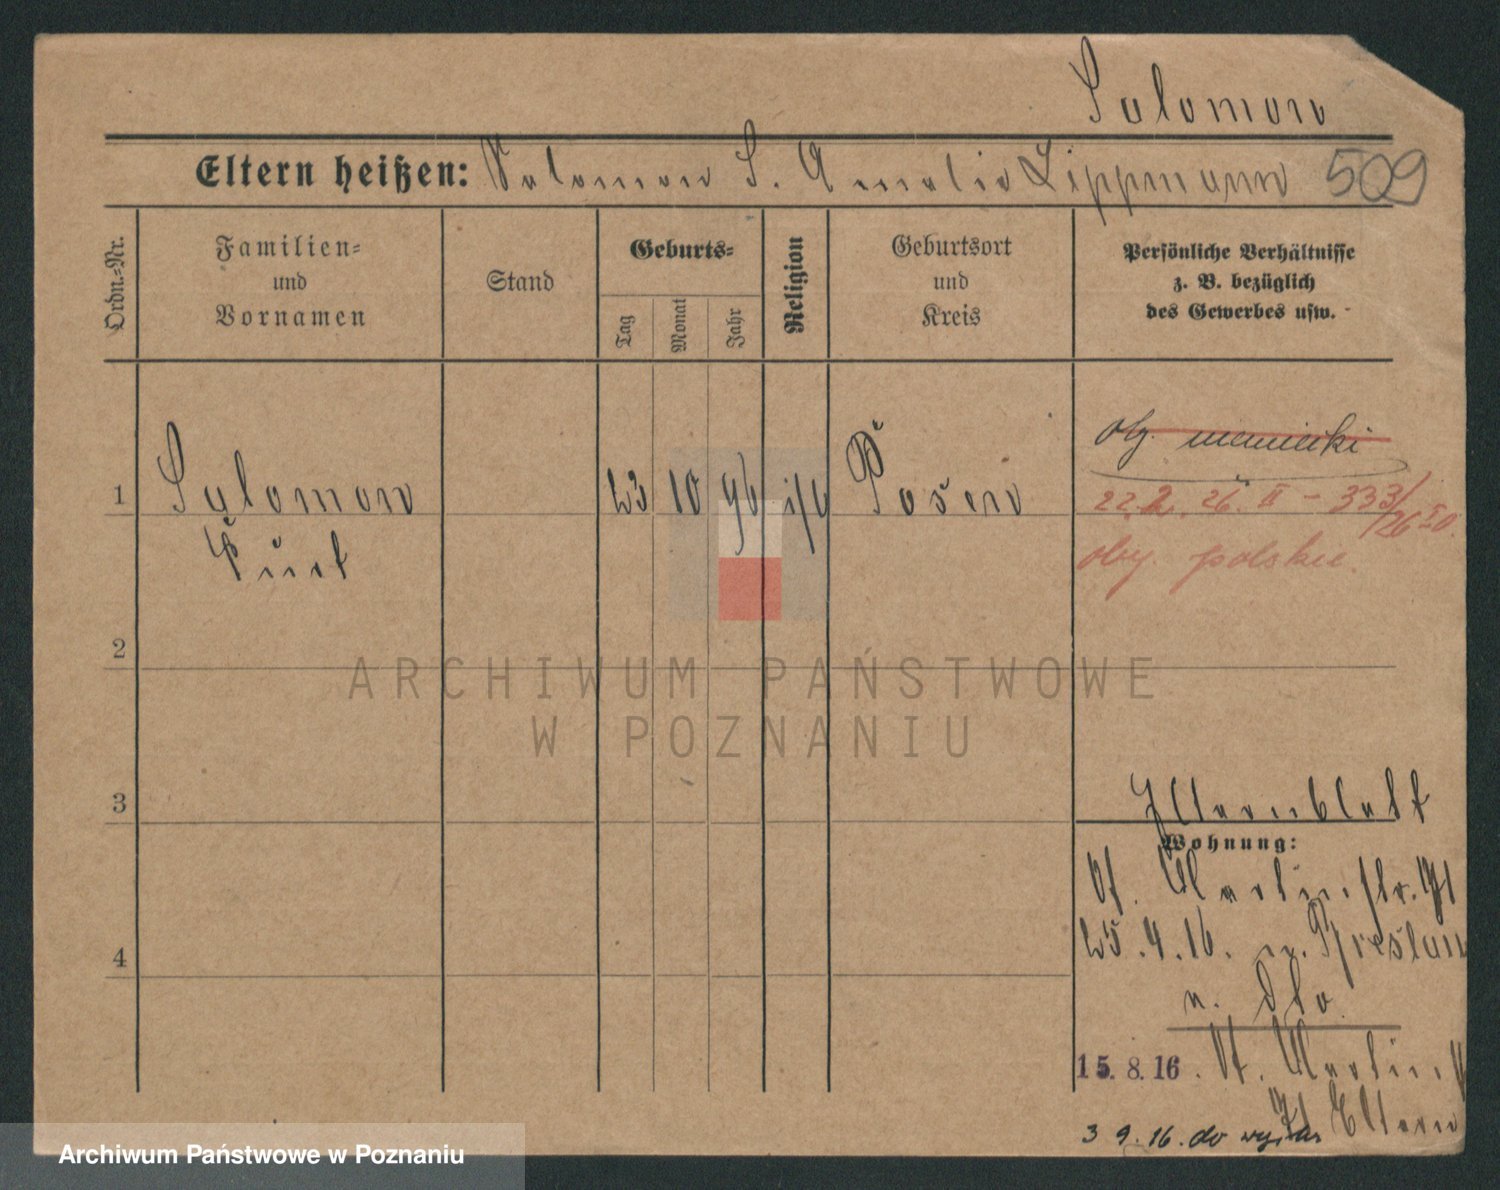 Salomon
Eltern heißen: Salomon S. Amalie Lippmann 509
Ordn.=Nr.
Familien=
und
Vornamen
Stand
Geburts=
Tag
Monat
Jahr
Religion
Geburtsort
und
Kreis
Persönliche Verhältnisse
z. B. bezüglich
des Gewerbes usw.
1 Salomon 23 10 96 Posen
Curt
ob. niemiecki
22.2.26. II - 333/26
oby. polskie.
2
3
4
ARCHIWUM PAŃSTWOWE
W POZNANIU
Elternblatt
Wohnung:
St. Martinstr.
25.4.16. Breslau
n. dto
15.8.16. St. Martin
Eltern
3 9.16. do
Archiwum Państwowe w Poznaniu